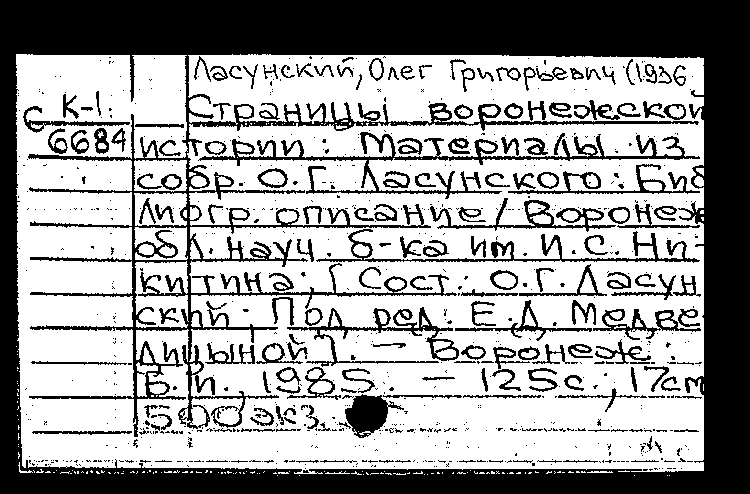 Ласунский, Олег Григорьевич (1936
С К-1: Страницы воронежской
6684 истории : Материалы из
собр. О.Г. Ласунского : Биб
лиогр. описание / Воронеж
обл. науч. б-ка им. И.С. Ни-
китина ; [ Сост.: О.Г. Ласун
ский ; Под ред. Е.Д. Медве
дицыной ]. — Воронеж :
Б.и., 1985. — 125с.; 17см
500 экз.